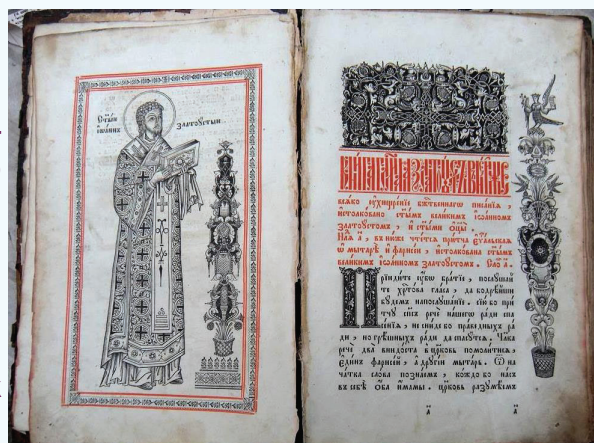 Ст҃ый
іѡаннъ
златоустый
всѧко ᲂухищренїе бжⷭ҇твеннагѡ писанїѧ,
истолковано ст҃ымъ великимъ іѡанномъ
златоустомъ, и ст҃ыми ѻ҆ц҃ы.
в нюже чтетсѧ притча еѵⷢ҇льскаѧ
ѡ мытарѣ и фарисеи, истолкована ст҃ымъ
великимъ іѡанномъ златоустомъ. Сло а҃.
Прїидите ᲂубо братїе, послушай
те хрⷭ҇това гласа, да бодрѣйши
будемъ на послушанїе. сїю бо при
тчу сп҃съ рече нашегѡ ради спа
сенїѧ, не сниде бо праведныхъ ра
ди, но грѣшныхъ ради да спасутсѧ. Чл҃ка
рече два внидоста в цр҃ковь помолитисѧ,
единъ фарисей а другїй мытарь. Ѿ на
чатка слова познаемъ, кождо бо насъ
въ себѣ ѻба имамы. цр҃ковь разумѣемъ
а҃ а҃